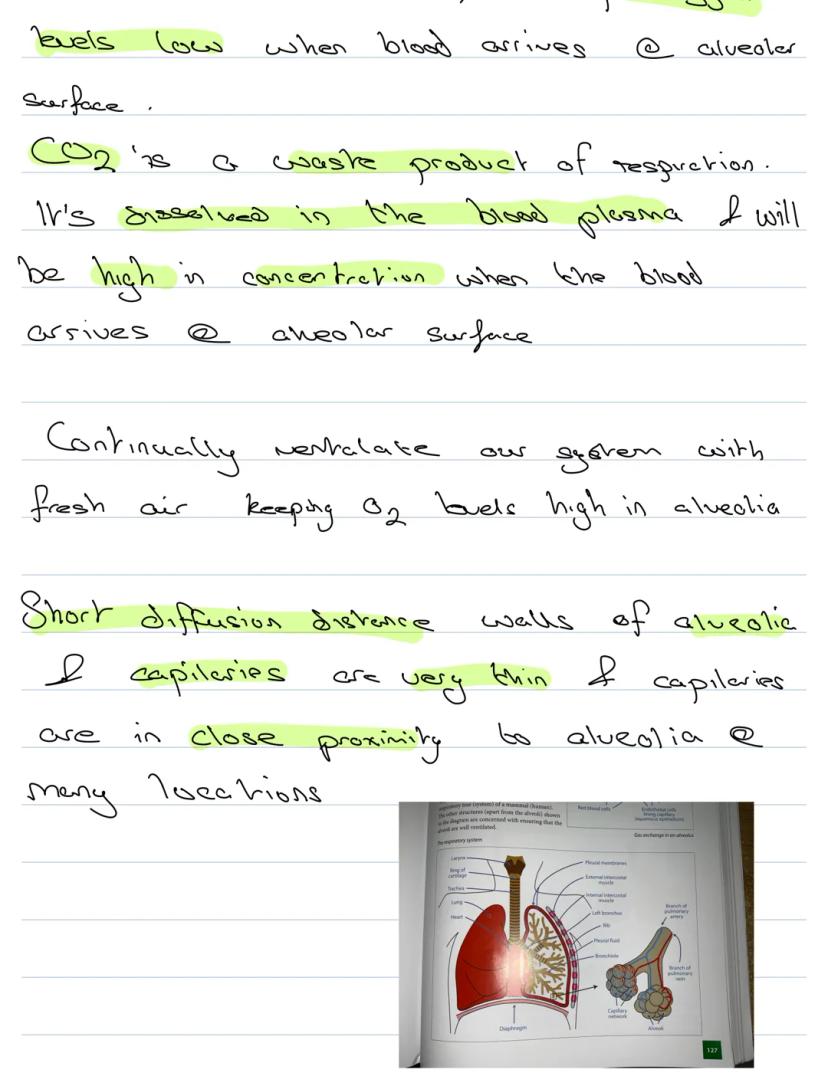 levels low when blood arrives @ alveolar
surface.
CO2 is a waste product of respiration.
It's dissolved in the blood plasma & will
be high in concentration when the blood
arrives @ alveolar surface
Continually our system with
fresh air keeping O2 levels high in alveolia
Short diffusion distance walls of alveolia
& capilaries are very thin & capilaries
are in close proximity to alveolia @
many locations
respiratory tree (system) of a mammal (human).
The other structures (apart from the alveoli) shown
in the diagram are concerned with ensuring that the
alveoli are well ventilated.
Red blood cells
Endothelial cells
lining capillary
(squamous epithelium)
Gas exchange in an alveolus
The respiratory system
Larynx
Ring of
cartilage
Trachea
Lung
Heart
Pleural membranes
External intercostal
muscle
Internal intercostal
muscle
Left bronchus
Rib
Pleural fluid
Bronchiole
Diaphragm
Branch of
pulmonary
artery
Branch of
pulmonary
vein
Capillary
network
Alveoli
127